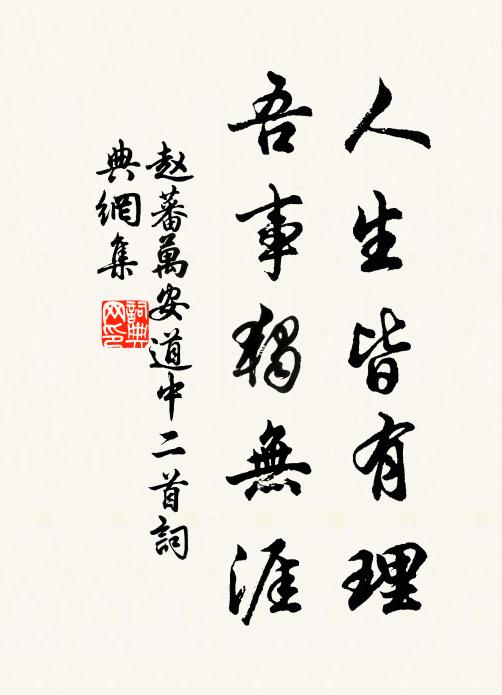 人生皆有理
吾事獨無涯
赵蕃萬安道中二首詞
典網集
詞典
网印